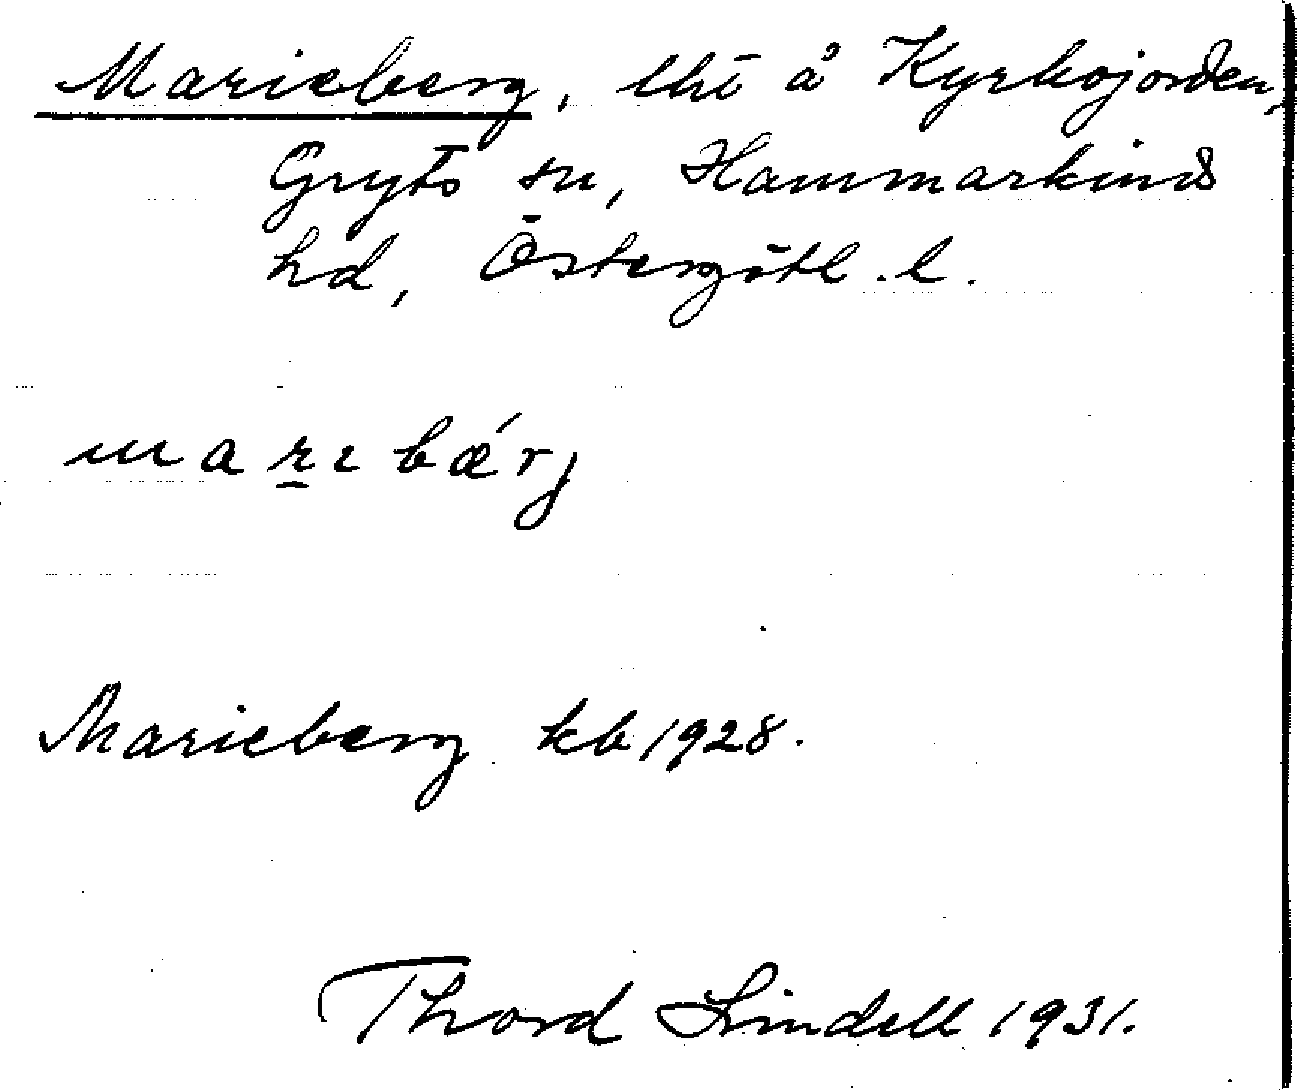 Marieberg, lht å Kyrkojorden,
Gryts sn, Hammarkinds
hd, Östergötl. l.
marɩbǽrj
Marieberg kb 1928.
Thord Lindell 1931.